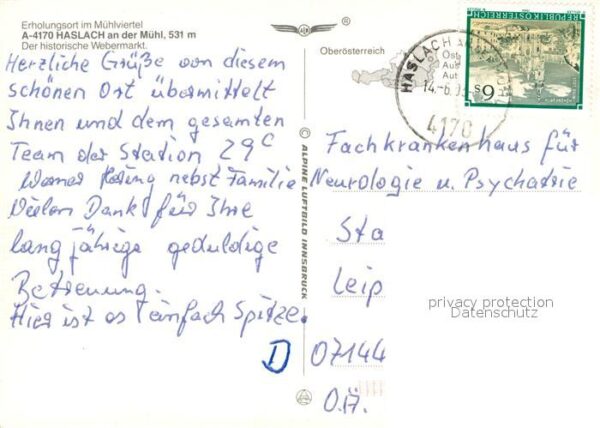 Erholungsort im Mühlviertel
A-4170 HASLACH an der Mühl, 531 m
Der historische Webermarkt.
Oberösterreich
Herzliche Grüße von diesem
schönen Ort übermittelt
Ihnen und dem gesamten
Team der Station 29c
Werner nebst Familie
Vielen Dank für Ihre
langjährige geduldige
Betreuung.
Hier ist es einfach Spitze.
ALPINE LUFTBILD INNSBRUCK
REPUBLIK ÖSTERREICH
S 6
HASLACH AN DER
14.-6.
4170
Fachkrankenhaus für
Neurologie u. Psychatrie
Sta
Leip
privacy protection
Datenschutz
D 07144
O.Ä.